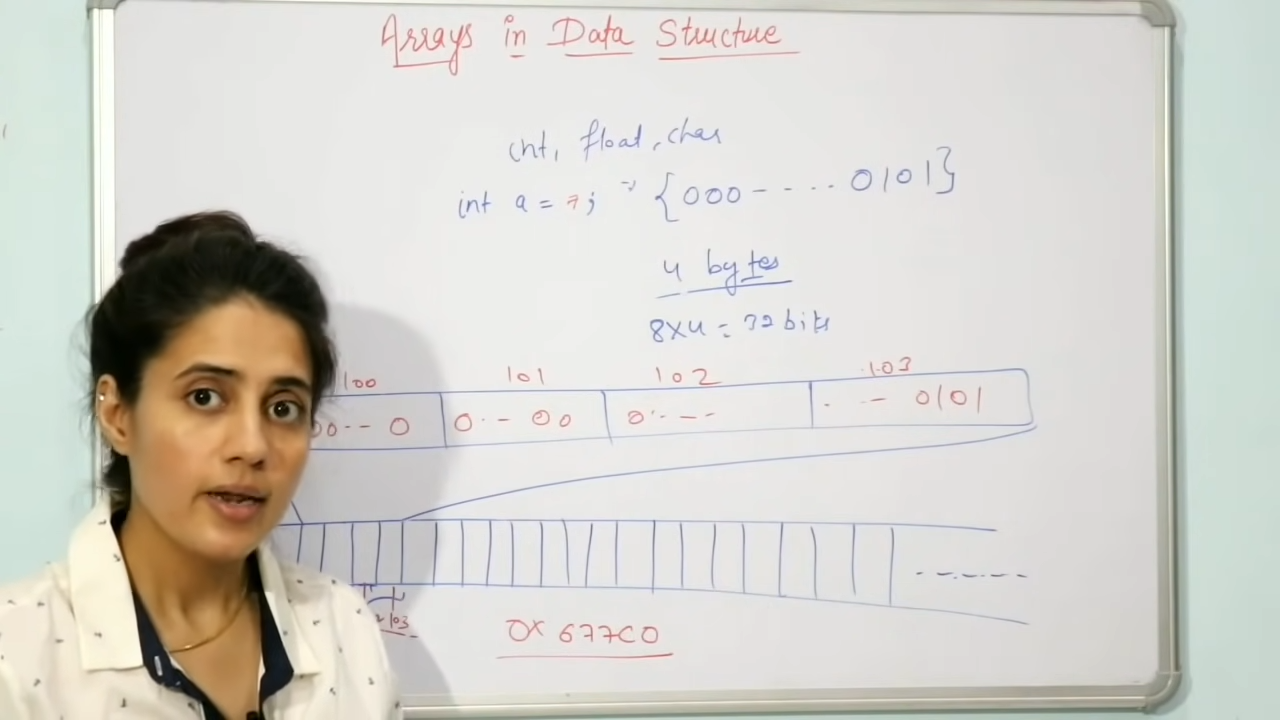 Arrays in Data Structure
int, float, char
int a = 7; {000- - ... 0101}
4 bytes
8x4 = 32 bits
100 101 102 103
00-- 0 0.- 00 0.--- . - 0101
103
0x 677C0